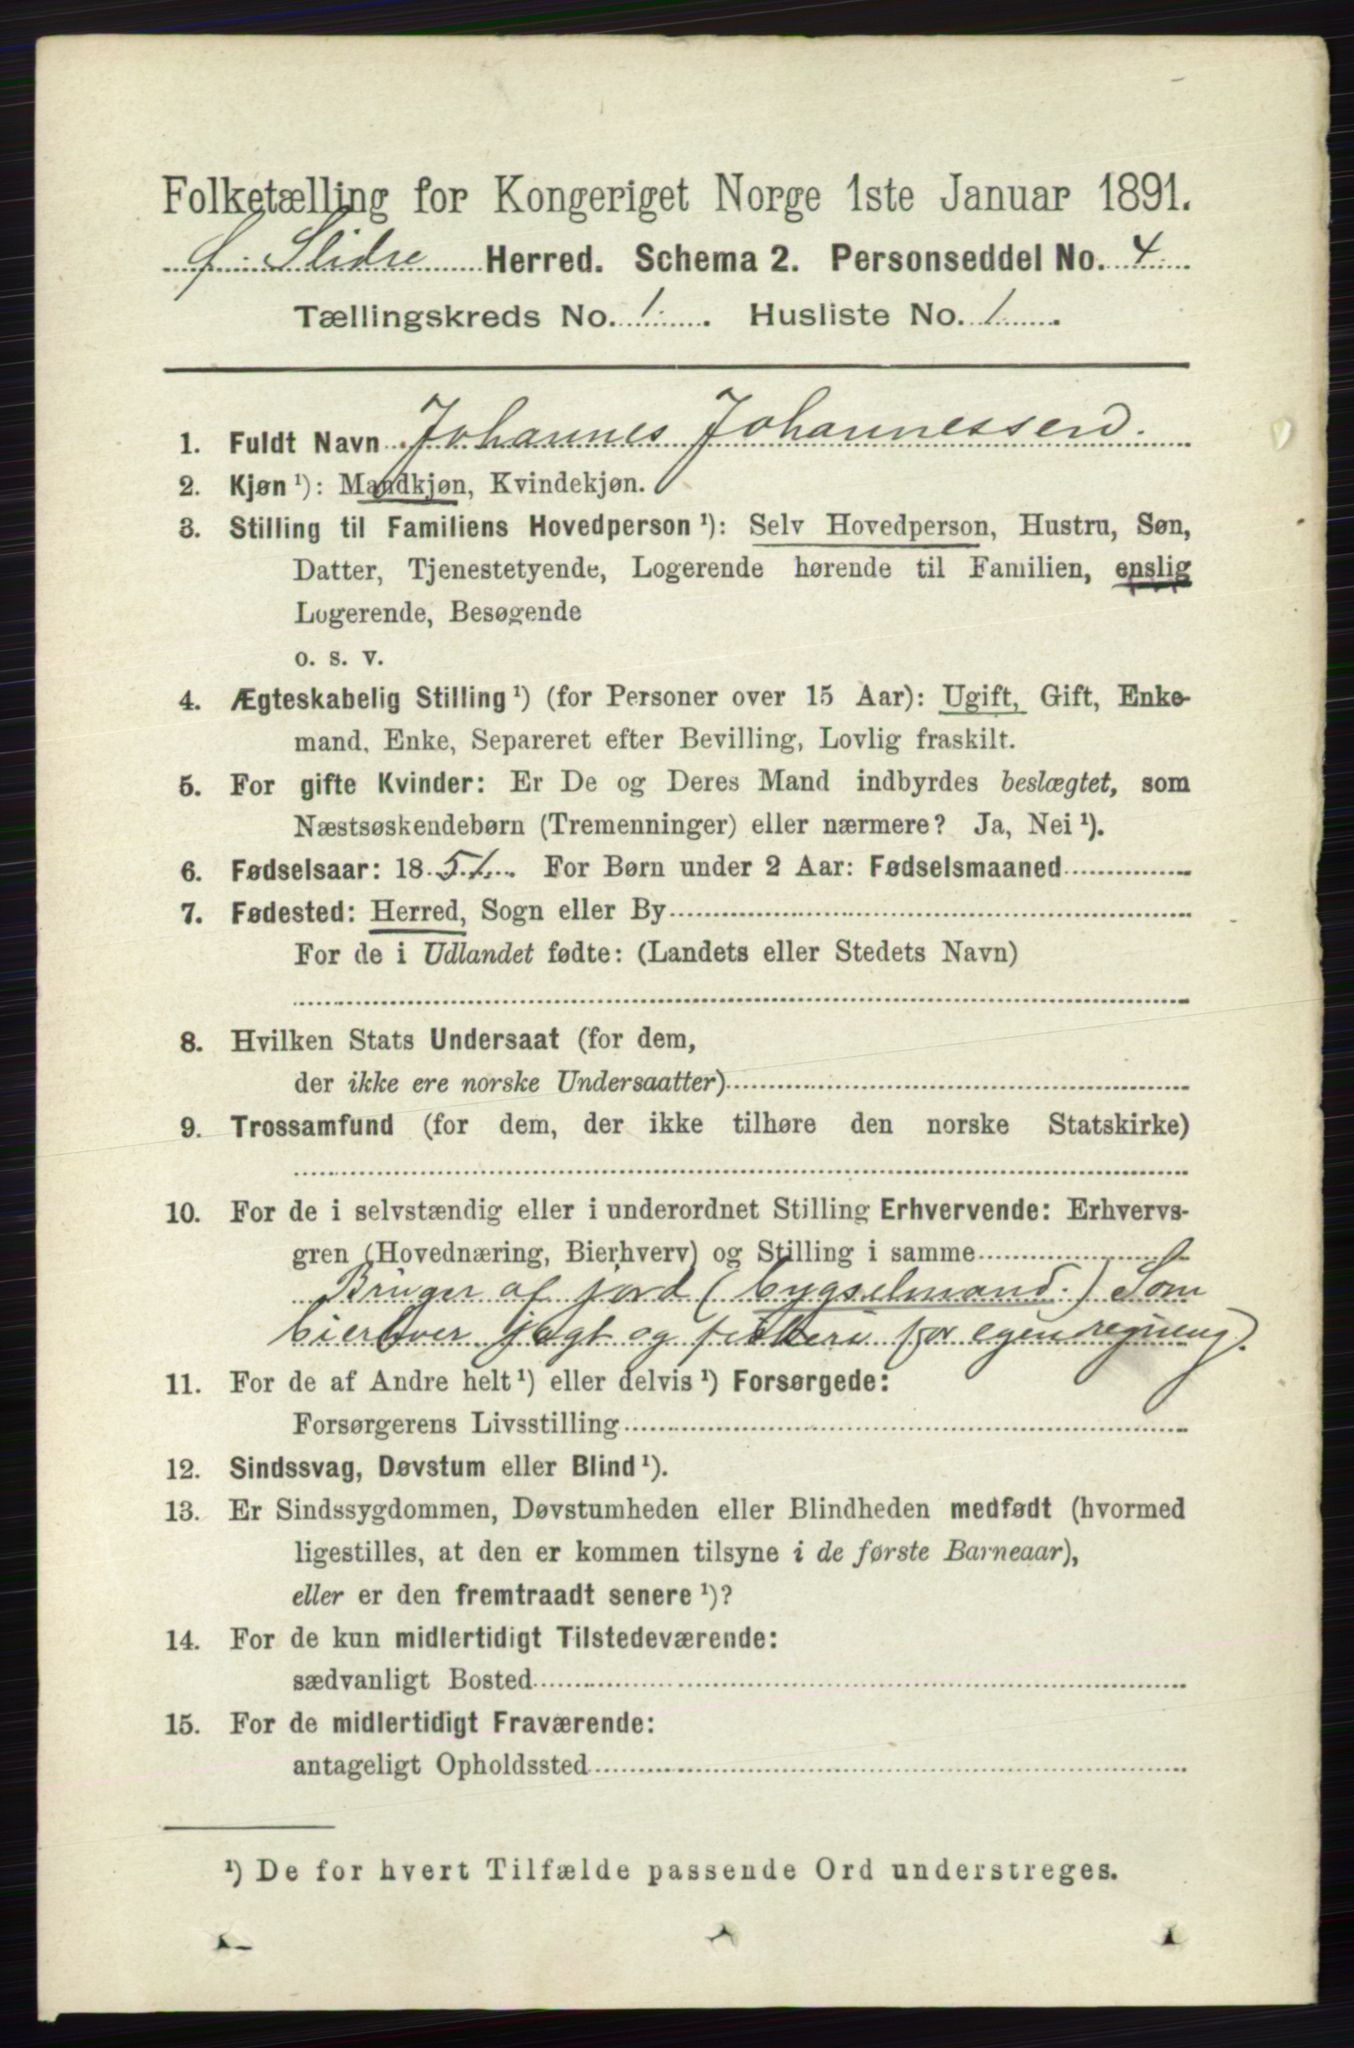 Folketælling for Kongeriget Norge 1ste Januar 1891.
Ø. Slidre Herred. Schema 2. Personseddel No. 4.
Tællingskreds No. 1. Husliste No. 1
1. Fuldt Navn Johannes Johannessen.
2. Kjøn ¹): Mandkjøn, Kvindekjøn.
3. Stilling til Familiens Hovedperson ¹): Selv Hovedperson, Hustru, Søn,
Datter, Tjenestetyende, Logerende hørende til Familien, enslig
Logerende, Besøgende
o. s. v.
4. Ægteskabelig Stilling ¹) (for Personer over 15 Aar): Ugift, Gift, Enke-
mand, Enke, Separeret efter Bevilling, Lovlig fraskilt.
5. For gifte Kvinder: Er De og Deres Mand indbyrdes beslægtet, som
Næstsøskendebørn (Tremenninger) eller nærmere? Ja, Nei ¹).
6. Fødselsaar: 1851. For Børn under 2 Aar: Fødselsmaaned
7. Fødested: Herred, Sogn eller By
For de i Udlandet fødte: (Landets eller Stedets Navn)
8. Hvilken Stats Undersaat (for dem,
der ikke ere norske Undersaatter)
9. Trossamfund (for dem, der ikke tilhøre den norske Statskirke)
10. For de i selvstændig eller i underordnet Stilling Erhvervende: Erhvervs-
gren (Hovednæring, Bierhverv) og Stilling i samme
Bruger af jord (bygselmand.) Som
bierhver jagt og fiskeri for egen regning.
11. For de af Andre helt ¹) eller delvis ¹) Forsørgede:
Forsørgerens Livsstilling
12. Sindssvag, Døvstum eller Blind ¹).
13. Er Sindssygdommen, Døvstumheden eller Blindheden medfødt (hvormed
ligestilles, at den er kommen tilsyne i de første Barneaar),
eller er den fremtraadt senere ¹)?
14. For de kun midlertidigt Tilstedeværende:
sædvanligt Bosted
15. For de midlertidigt Fraværende:
antageligt Opholdssted
¹) De for hvert Tilfælde passende Ord understreges.